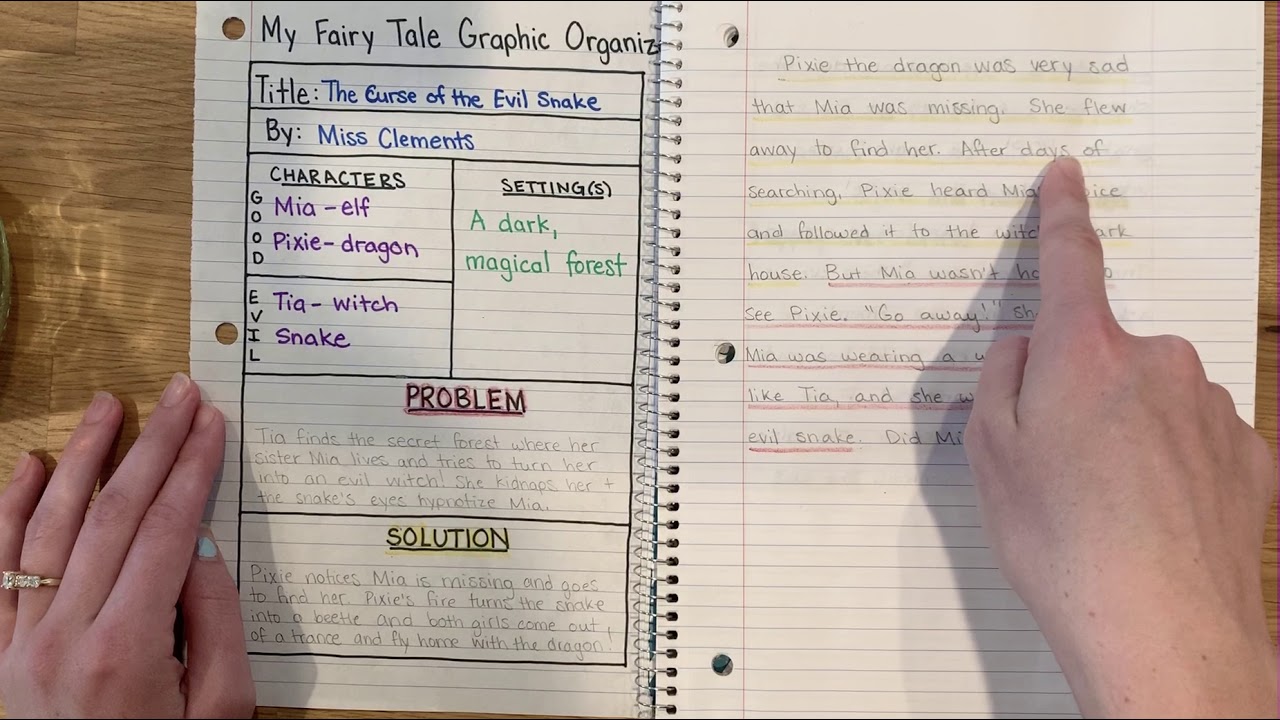 My Fairy Tale Graphic Organiz
Title: The Curse of the Evil Snake
By: Miss Clements
CHARACTERS
GOOD
Mia - elf
Pixie - dragon
EVIL
Tia - witch
Snake
SETTING(S)
A dark,
magical forest
PROBLEM
Tia finds the secret forest where her
sister Mia lives and tries to turn her
into an evil witch! She kidnaps her +
the snake's eyes hypnotize Mia.
SOLUTION
Pixie notices Mia is missing and goes
to find her. Pixie's fire turns the snake
into a beetle and both girls come out
of a trance and fly home with the dragon!
Pixie the dragon was very sad
that Mia was missing. She flew
away to find her. After days of
searching, Pixie heard Mia
and followed it to the
house. But Mia wasn't
see Pixie. "Go away!"
Mia was wearing a
like Tia, and she
evil snake. Did